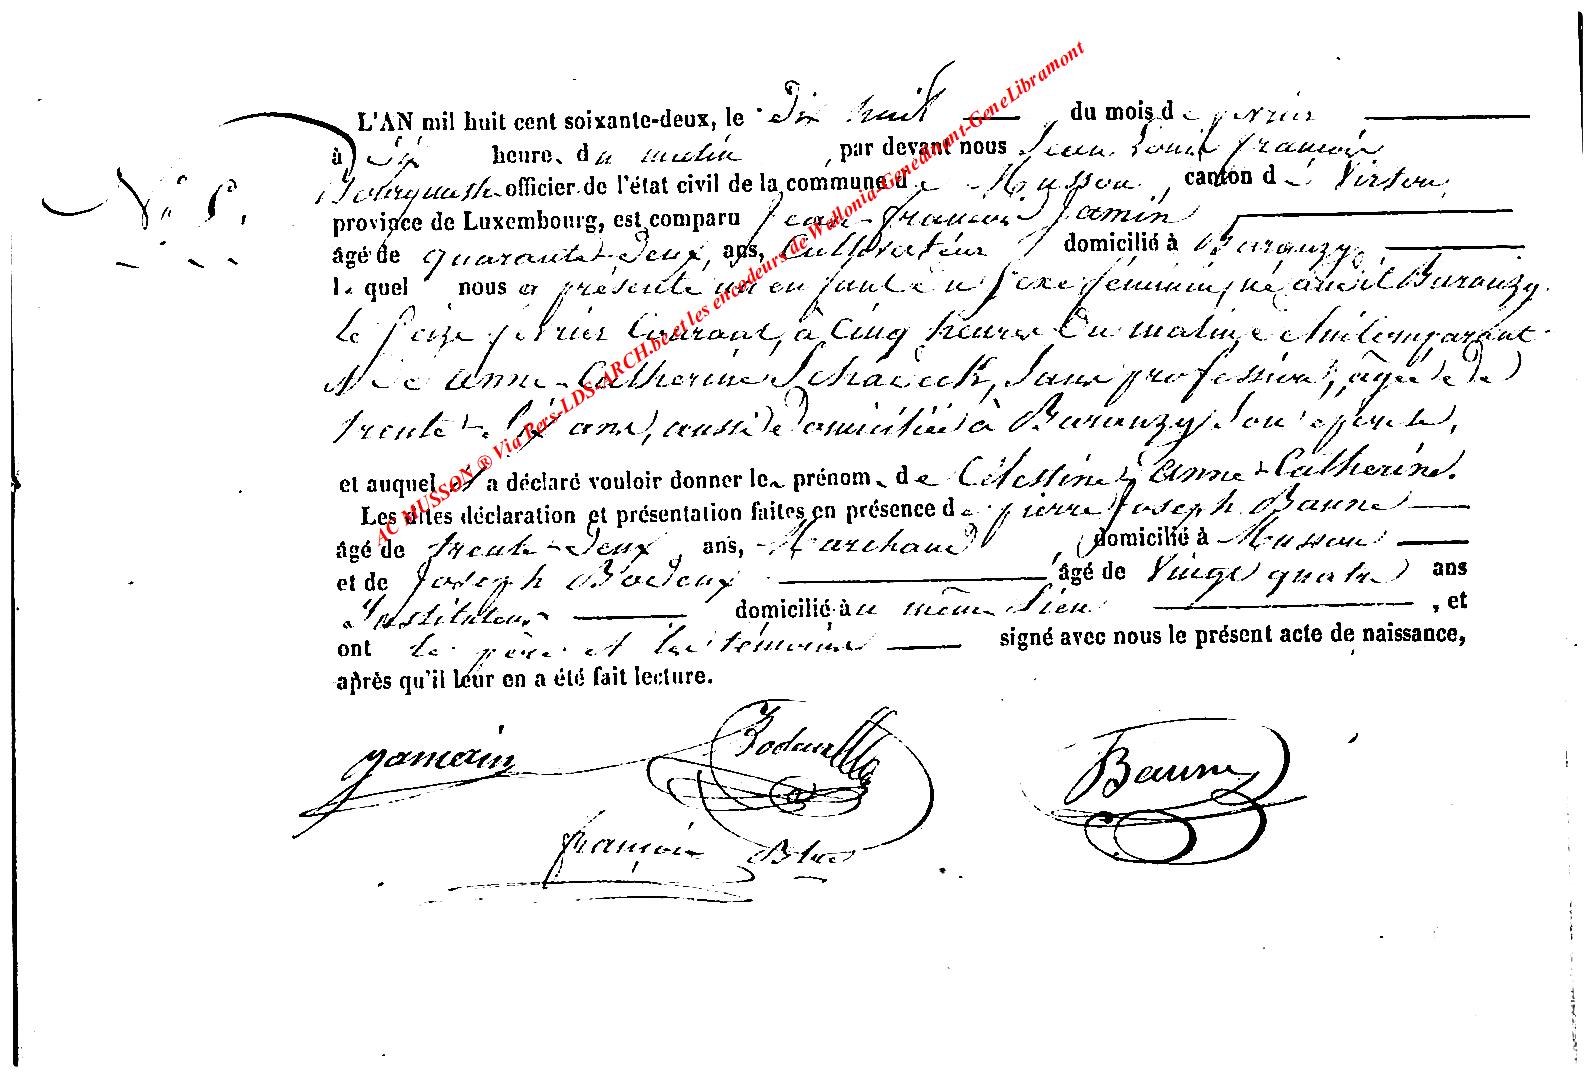 L'AN mil huit cent soixante-deux, le Dix huit du mois de février
à Dix heure du matin, par devant nous Jean Louis françois
officier de l'état civil de la commune de Musson, canton de Virton,
N° 8.
province de Luxembourg, est comparu Jean-françois Jamin
âgé de quarante-deux ans, Cultivateur domicilié à Baranzy,
lequel nous a présenté un enfant du sexe féminin, né audit Baranzy
le seize février courant, à cinq heures du matin, de lui Comparant
et de anne-Catherine Schaeck, sans profession, âgée de
trente-six ans, aussi domiciliée à Baranzy son épouse,
et auquel il a déclaré vouloir donner les prénoms de Célestine-anne-Catherine.
Les dites déclaration et présentation faites en présence de pierre Joseph Baune
âgé de trente-deux ans, Marchand, domicilié à Musson
et de Joseph Bodeux âgé de Vingt quatre ans
Instituteur domicilié au même lieu, et
ont le père et les témoins signé avec nous le présent acte de naissance,
après qu'il leur en a été fait lecture.
gamain Bodeux Baune
françois
AC MUSSON ® Via Bers-LDS-ARCH.be et les encodeurs de Wallonia-Genedinant-GeneLibramont